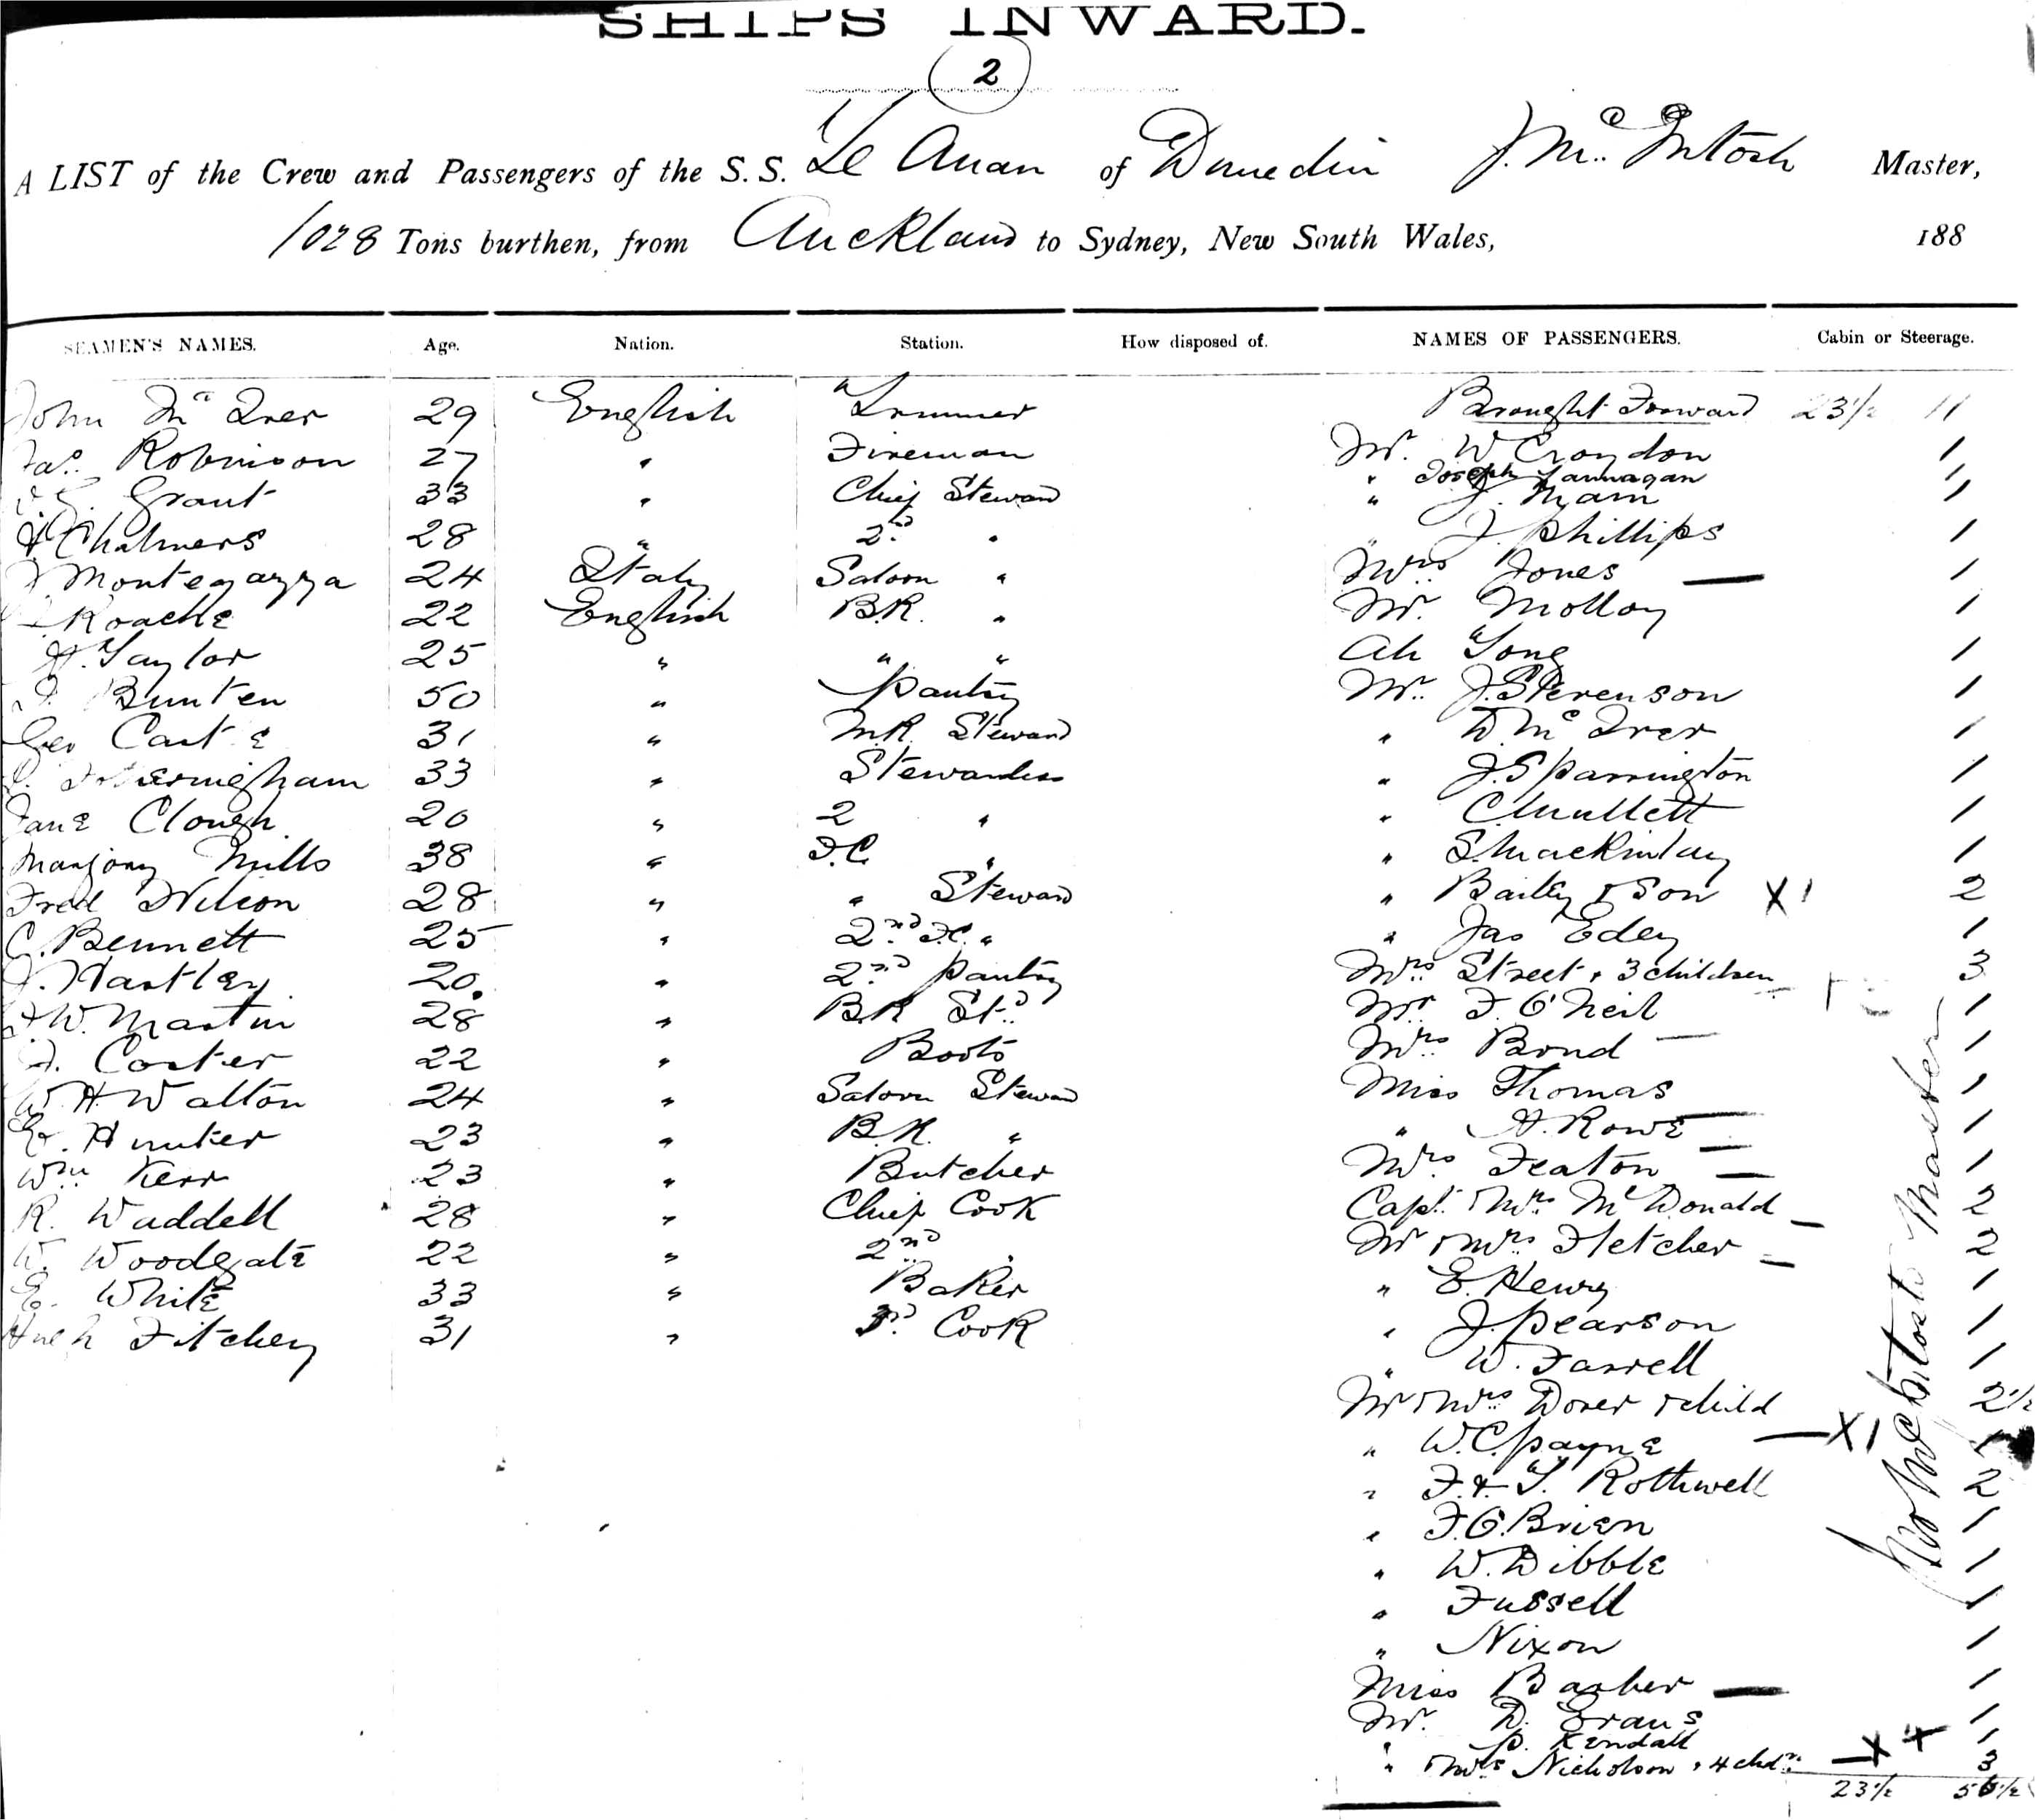 SHIPS INWARD.
2
A LIST of the Crew and Passengers of the S. S. Te Anau of Dunedin J. Mc Intosh Master,
1028 Tons burthen, from Auckland to Sydney, New South Wales, 188
SEAMEN'S NAMES. Age. Nation. Station. How disposed of. NAMES OF PASSENGERS. Cabin or Steerage.
John Mc Iver 29 English Trimmer Brought Forward 23½ 11
Jas. Robinson 27 " Fireman Mr. W Croydon 1
" Joseph Lannagan 1
Grant 33 " Chief Steward " J. Main 1
Chalmers 28 " 2nd " " J Phillips 1
Montegazza 24 Italy Saloon " Mrs Jones — 1
Roache 22 English B.R. " Mr. Molloy 1
H. Taylor 25 " " " Ah Tong 1
Bunten 50 " Pantry Mr. J. Stevenson 1
Geo Castle 31 " M.R. Steward " D. Mc Iver 1
Fotheringham 33 " Stewardess " J. Sparrington 1
Jane Clough 20 " 2 " " C. Mullett 1
Marjory Mills 38 " F.C. " " S. Mackinlay 1
Fred Wilson 28 " " Steward " Bailey & Son X1 2
C. Bennett 25 " 2nd F.C. " " Jas Edey 1
J. Hartley 20 " 2nd Pantry Mrs Street & 3 children 3
W. Martin 28 " B.R. Std. Mr F. O'Neil 1
J. Carter 22 " Boots Mrs Bond — 1
W H Walton 24 " Saloon Steward Miss Thomas 1
E. Hunter 23 " B.R. " " A. Rowe — 1
Wm Kerr 23 " Butcher Mrs Featon — 1
R. Waddell 28 " Chief Cook Capt & Mrs McDonald — 2
W. Woodgate 22 " 2nd " Mr & Mrs Fletcher — 2
E. White 33 " Baker " E. Henry 1
Hugh Fitchey 31 " 3rd Cook " J. Pearson 1
" W. Farrell 1
Mr & Mrs Dover & child 2½
" W.C. Payne — X1 1
" F. & T. Rothwell 2
" F. O'Brien 1
" W. Dibble 1
" Fussell 1
" Nixon 1
Miss Barber — 1
Mr. D. Evans 1
" P. Kendall 1
" & Mrs Nicholson & 4 chdn. — X + 3
23½ 56½
Jno McIntosh Master